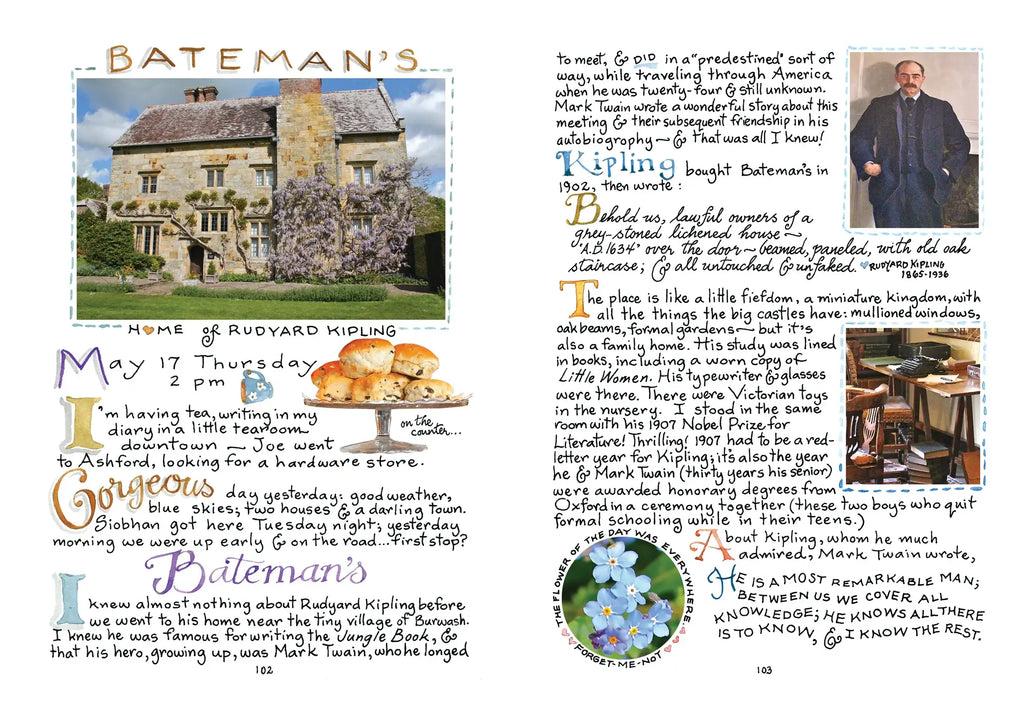 BATEMAN'S
HOME of RUDYARD KIPLING
May 17 Thursday
2 pm
on the
counter...
I'm having tea, writing in my
diary in a little tearoom
downtown ~ Joe went
to Ashford, looking for a hardware store.
Gorgeous day yesterday: good weather,
blue skies; two houses & a darling town.
Siobhan got here Tuesday night; yesterday
morning we were up early & on the road...first stop?
Bateman's
I knew almost nothing about Rudyard Kipling before
we went to his home near the tiny village of Burwash.
I knew he was famous for writing the Jungle Book, &
that his hero, growing up, was Mark Twain, who he longed
102
to meet, & DID in a "predestined" sort of
way, while traveling through America
when he was twenty-four & still unknown.
Mark Twain wrote a wonderful story about this
meeting & their subsequent friendship in his
autobiography ~ & that was all I knew!
Kipling bought Bateman's in
1902, then wrote:
Behold us, lawful owners of a
grey-stoned lichened house ~
'A.D. 1634' over the door ~ beamed, paneled, with old oak
staircase; & all untouched & unfaked. RUDYARD KIPLING
1865-1936
The place is like a little fiefdom, a miniature kingdom, with
all the things the big castles have: mullioned windows,
oak beams, formal gardens ~ but it's
also a family home. His study was lined
in books, including a worn copy of
Little Women. His typewriter & glasses
were there. There were Victorian toys
in the nursery. I stood in the same
room with his 1907 Nobel Prize for
Literature! Thrilling! 1907 had to be a red-
letter year for Kipling; it's also the year
he & Mark Twain (thirty years his senior)
were awarded honorary degrees from
Oxford in a ceremony together (these two boys who quit
formal schooling while in their teens.)
THE FLOWER OF THE DAY WAS EVERYWHERE.
FORGET-ME-NOT
About Kipling, whom he much
admired, Mark Twain wrote,
HE IS A MOST REMARKABLE MAN;
BETWEEN US WE COVER ALL
KNOWLEDGE; HE KNOWS ALL THERE
IS TO KNOW, & I KNOW THE REST.
103